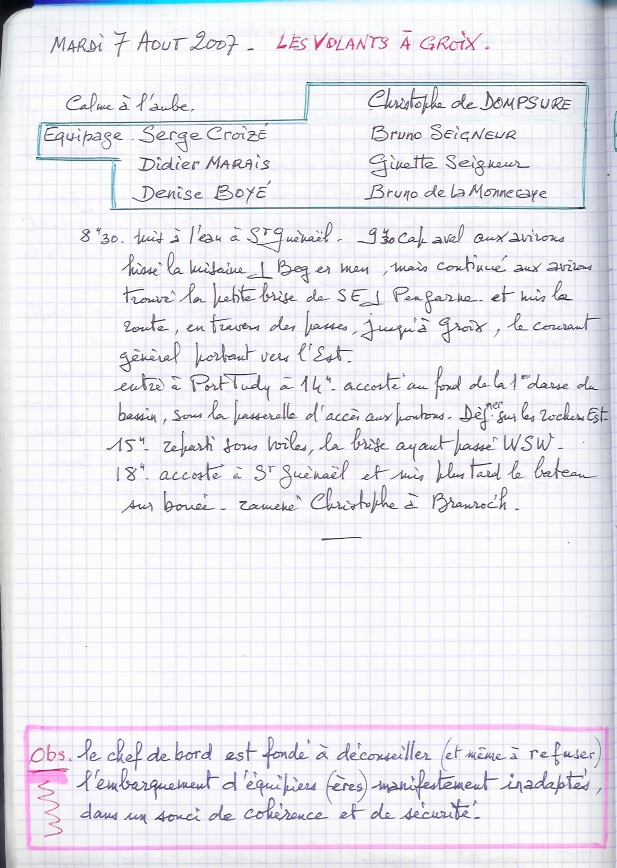 MARDI 7 AOUT 2007 - LES VOLANTS À GROIX.
Calme à l'aube.
Equipage. Serge CROIZÉ
Didier MARAIS
Denise BOYÉ
Christophe de DOMPSURE
Bruno SEIGNEUR
Ginette Seigneur
Bruno de la Monneraye
8h30. mis à l'eau à St Guénaël - 9h30 cap aval aux avirons
hissé la misaine ⊥ Beg er men, mais continué aux avirons
trouvé la petite brise de SE ⊥ Pengarne et mis la
route, en travers des passes, jusqu'à Groix, le courant
général portant vers l'Est.
entré à Port Tudy à 14h. accosté au fond de la 1ère darse du
bassin, sous la passerelle d'accès aux pontons. Déjner sur les rochers Est.
15h. reparti sous voiles, la brise ayant passé WSW.
18h. accosté à St Guénaël et mis plus tard le bateau
sur bouée. ramené Christophe à Branroc'h.
Obs. le chef de bord est fondé à déconseiller (et même à refuser)
l'embarquement d'équipiers (ères) manifestement inadaptés,
dans un souci de cohérence et de sécurité.